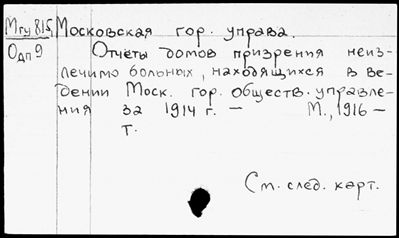 Мгу 815, Московская гор. управа.
Одп 9 Отчёты домов призрения неиз-
лечимо больных, находящихся в ве-
дении Моск. гор. обществ. управле-
ния за 1914 г. – М., 1916 –
т.
См. след. карт.